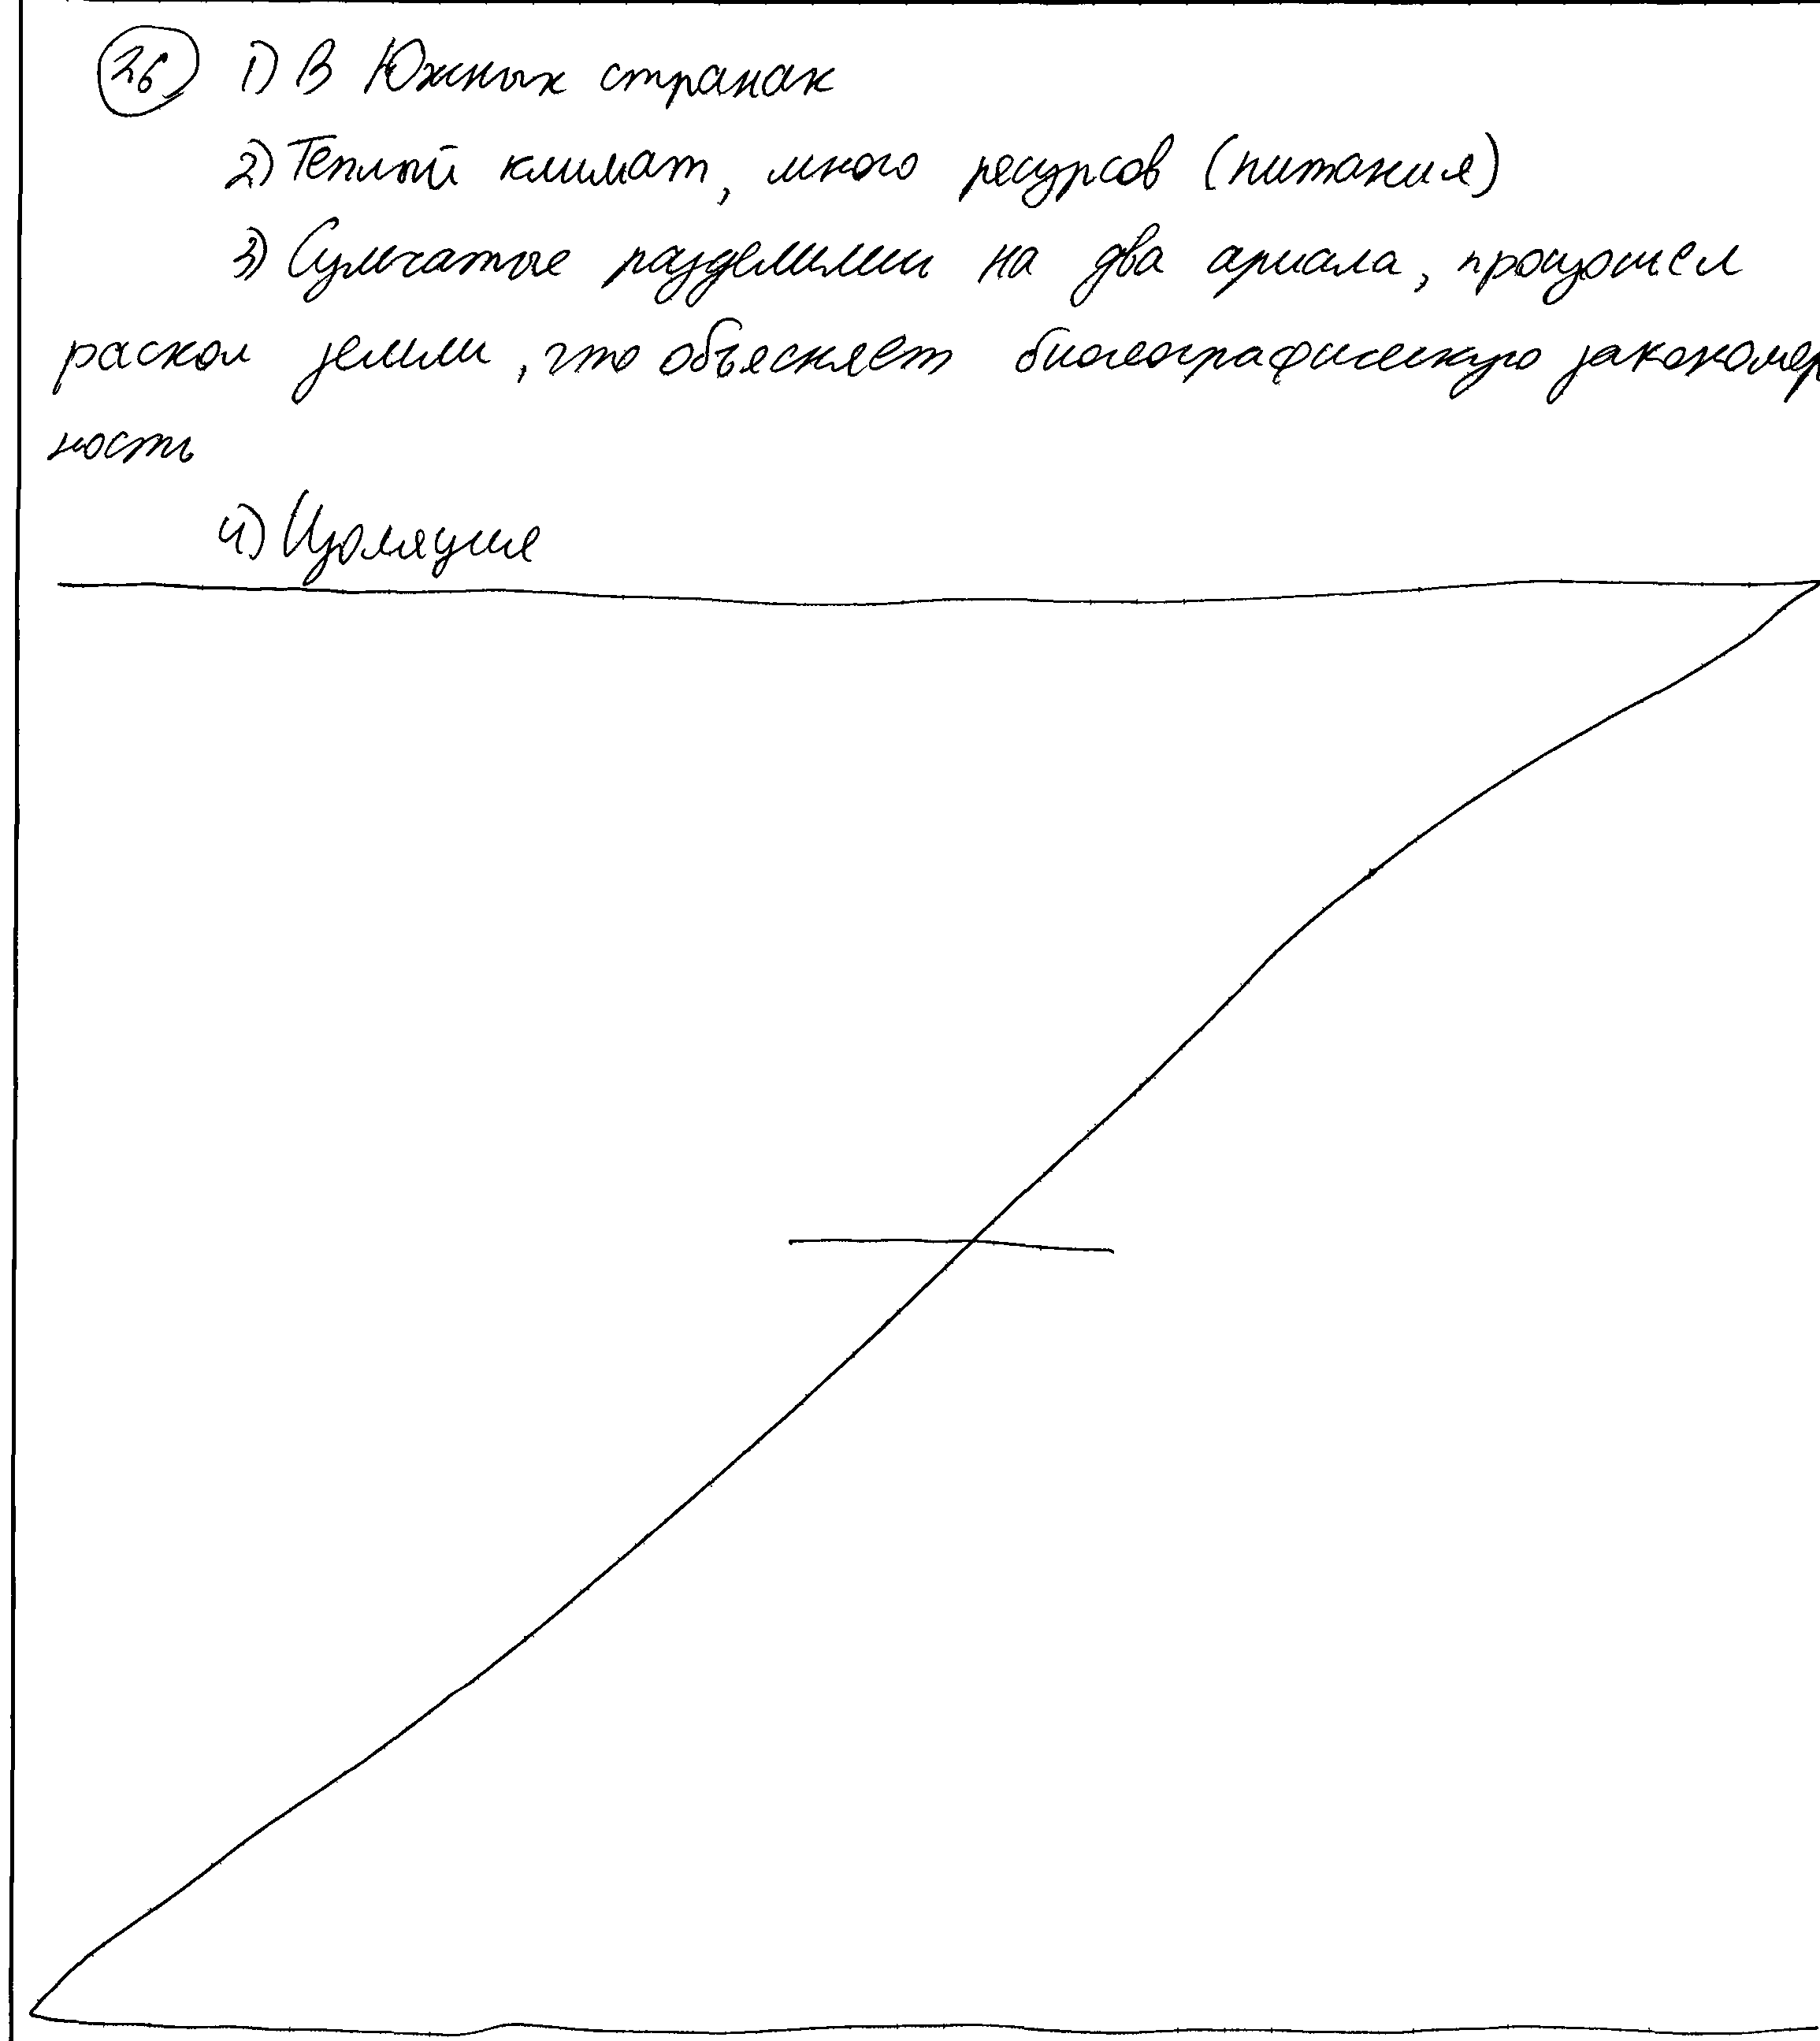 26 1) В Южных странах
2) Теплый климат, много ресурсов (питания)
3) Сумчатые разделились на два ариала, произошел
раскол земли, что объясняет биогеографическую закономер
ность
4) Изоляция